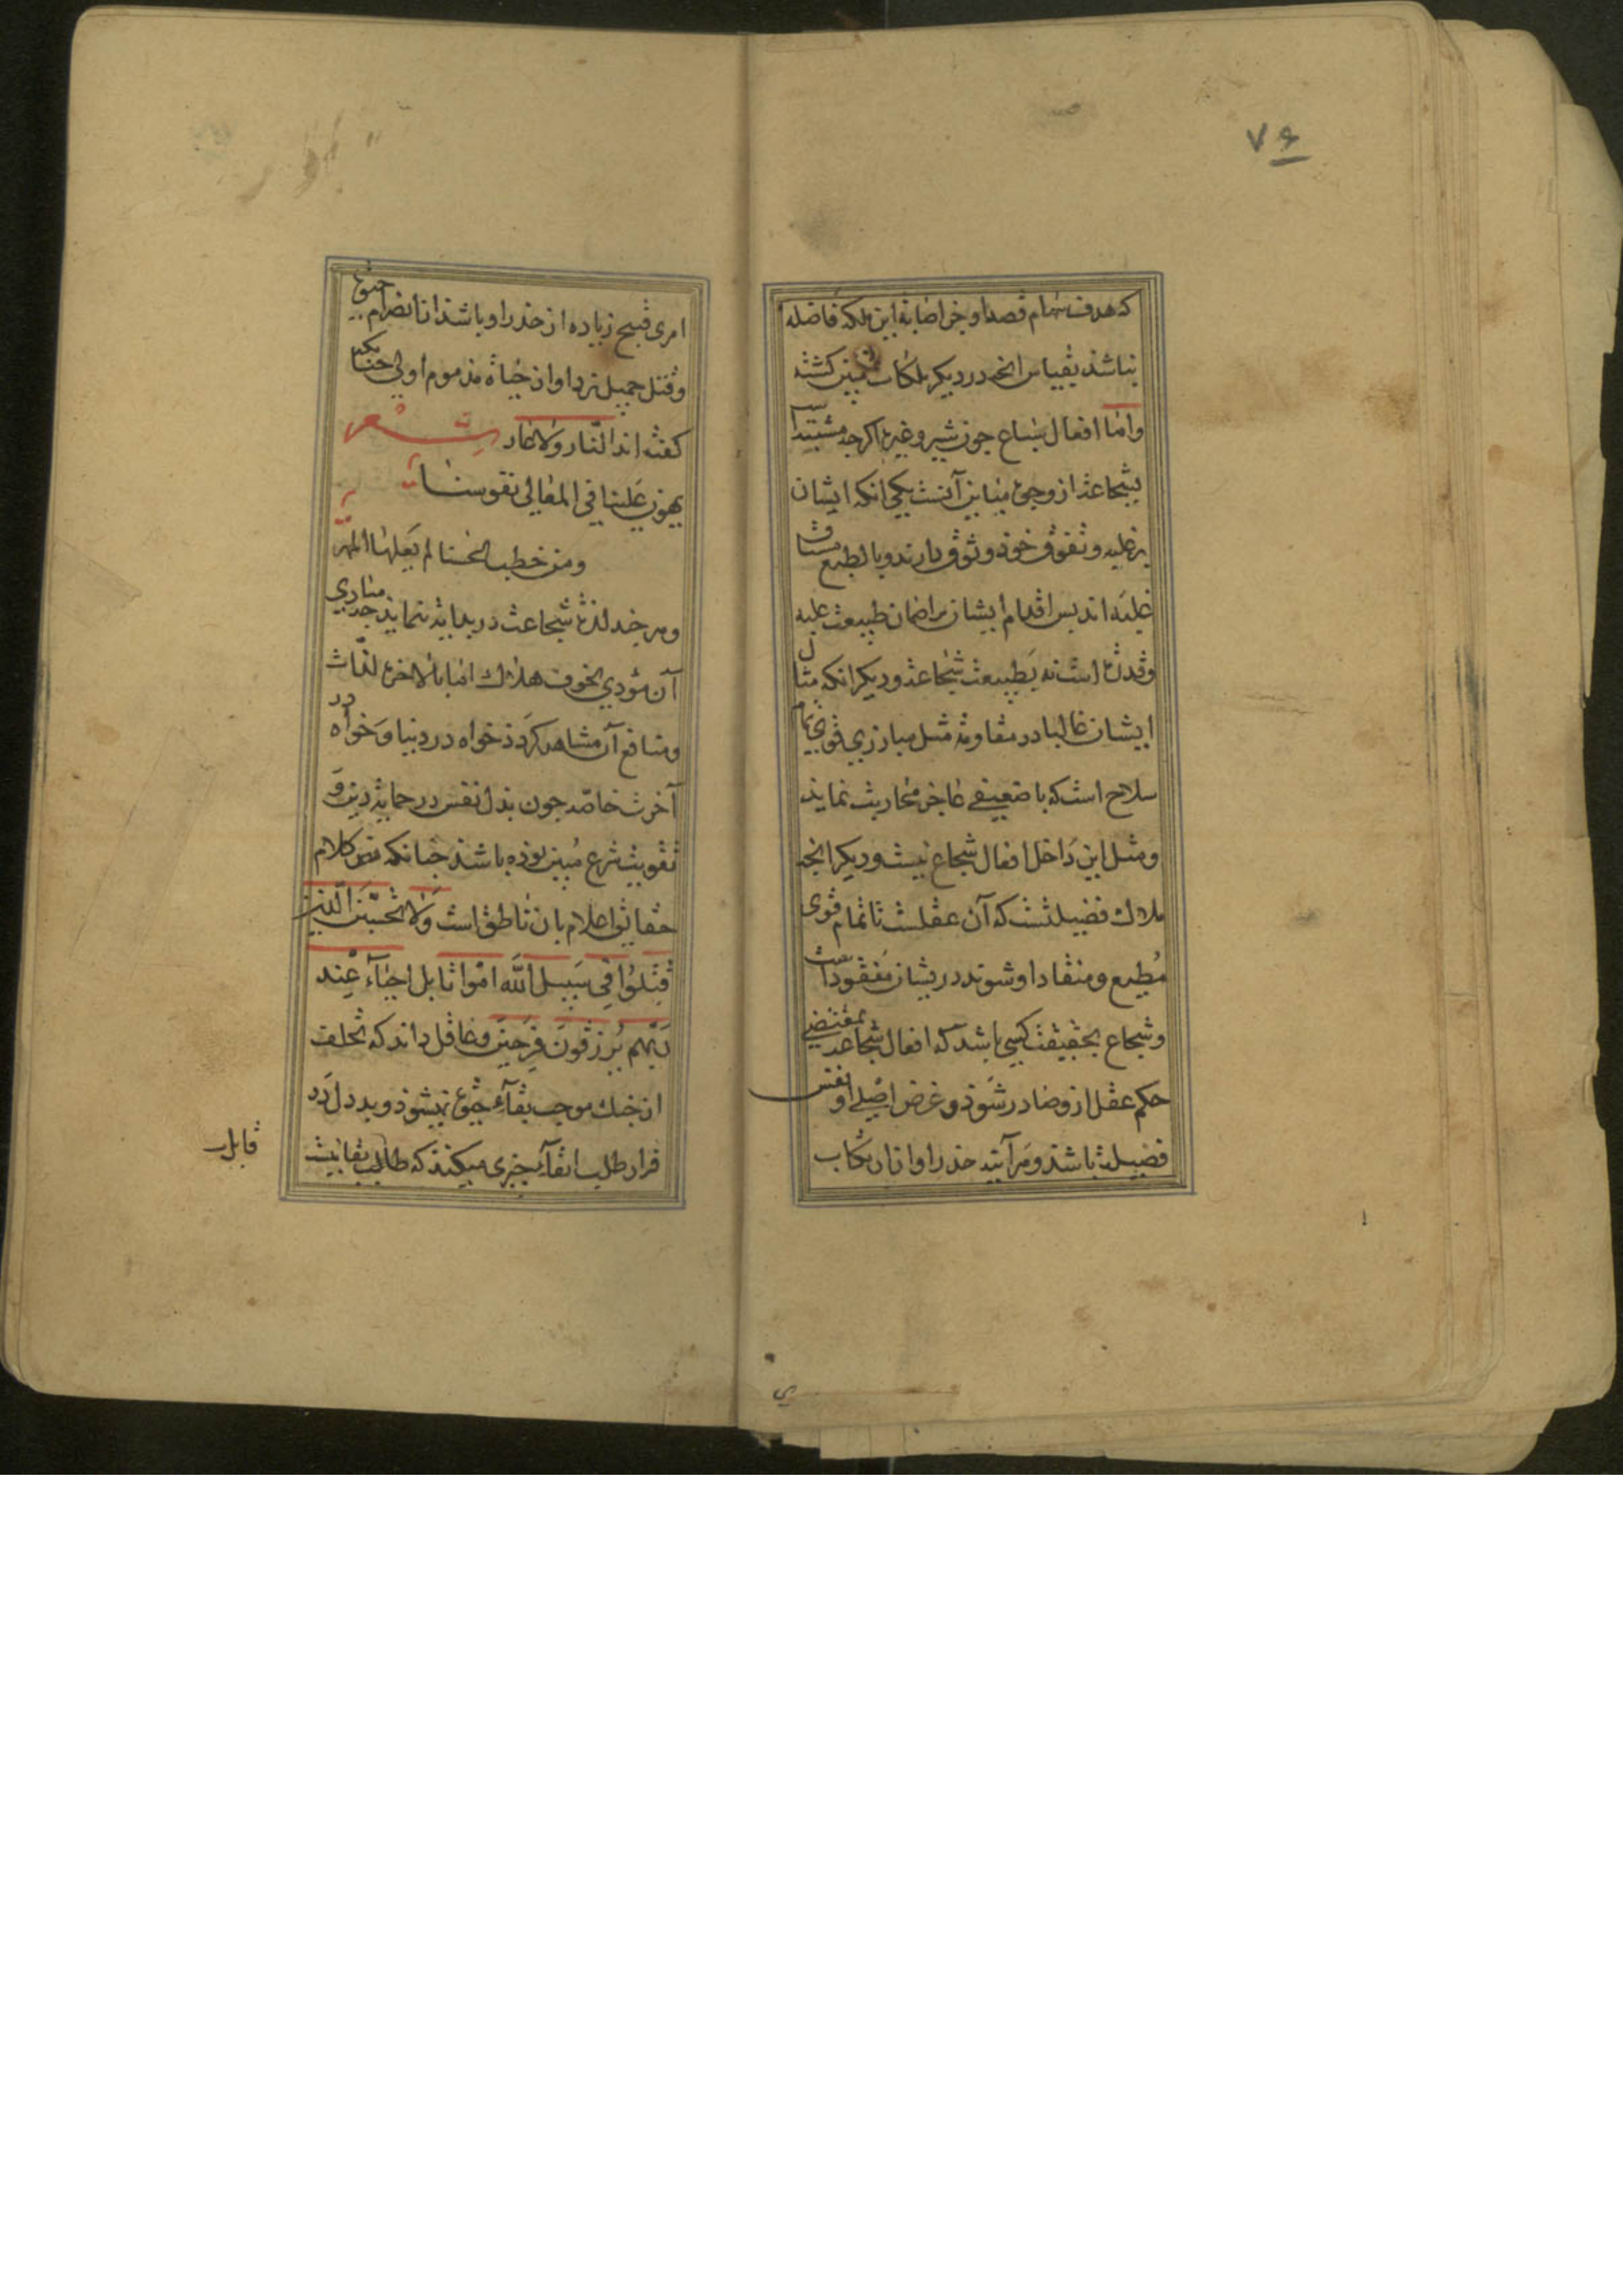 ۷۶
که هدف سهام قصد او جز اصابهٔ این ملکه فاضله
نباشد بقیاس انچه در دیکر ملکات مبین کشته
واما افعال سباع جون شیر و غیرها اکرجه مشتبه است
بشجاعة از وجوه مباین آنست یکی انکه ایشان
بر غلبه و تفوق خود وثوق دارند و بالطبع مشتاق
غلبه اند بس اقدام ایشان بر اضمان طبیعت غلبه
وقدرة است نه بطبیعت شجاعة و دیکر انکه مثل
ایشان غالبا در مقاومة مثل مبارزی قوی تمام
سلاح است که با ضعیفی عاجز محاربت نماید
ومثل این داخل افعال شجاع نیست و دیکر انچه
ملاک فضیلتست که آن عقلست تا تمام قوی
مطیع و منقاد او شوند در یشان مفقود است
وشجاع بحقیقت کسی باشد که افعال شجاعة بمقتضی
حکم عقل ازو صادر شود و غرض اصلی او نفس
فضیلة باشد و هر آینه حذر او از ارتکاب
امری قبیح زیاده از حذر او باشد از انصرام حیوة
وقتل جمیل نزد او از حیاة مذموم اولی جنانکه
کفته اند النار ولا العار شعر
یهون علینا فی المعالی نفوسنا
ومن خطب الحسنا لم یغلها المهر
وهر جند لذة شجاعت در بدایة ننماید جه مبادی
آن مؤدی بخوف هلاک اما بالاخره لذات
ومنافع آن مشاهده کردد خواه در دنیا وخواه در
آخرت خاصه جون بذل نفس در حمایة دین و
تقویت شرع مبین بوده باشد جنانکه نص کلام
حقایق اعلام بان ناطق است ولا تحسبن الذین
قتلوا فی سبیل الله امواتا بل احیاء عند
ربهم یرزقون فرحین وعاقل داند که تخلف
از جنک موجب بقاء حیوة نمیشود و بد دل در
فرار طلب ابقاء جیزی میکند که طالب بقا نیست
قابل